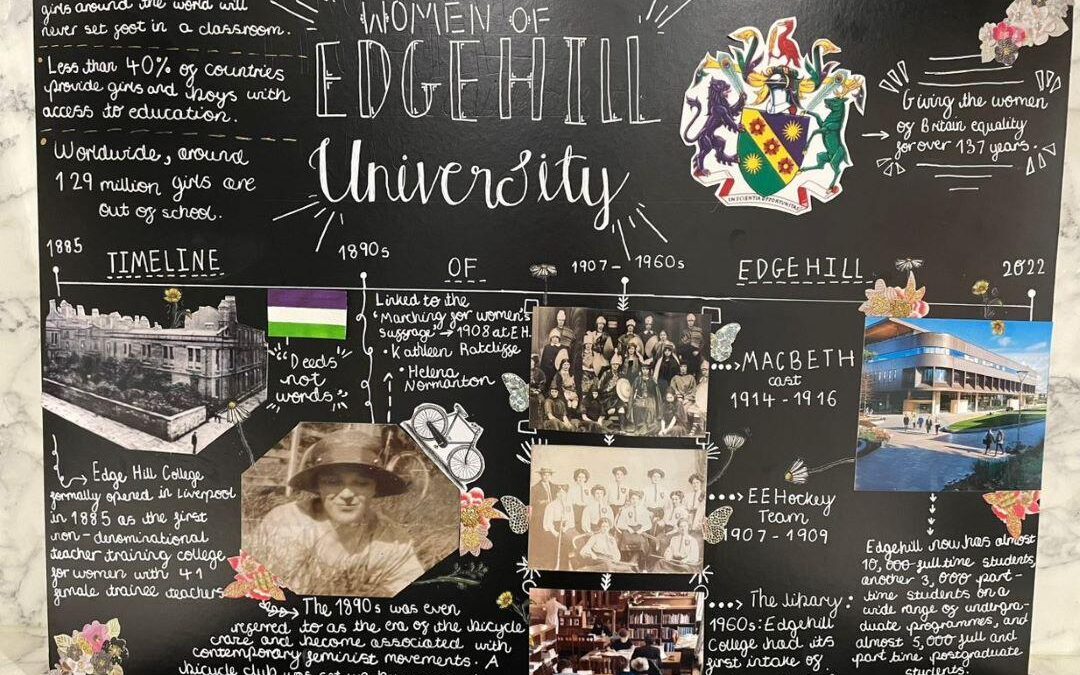 girls around the world will
never set foot in a classroom.
• Less than 40% of countries
provide girls and boys with
access to education.
• Worldwide, around
129 million girls are
out of school.
WOMEN OF
EDGEHILL
University
IN SCIENTIA OPPORTUNITAS
→ Giving the women
of Britain equality
for over 137 years.
1885
1890s
1907 - 1960s
2022
TIMELINE OF EDGEHILL
Edge Hill College
formally opened in Liverpool
in 1885 as the first
non-denominational
teacher training college
for women with 41
female trainee teachers
"Deeds
not
words"
Linked to the
'Marching for women's
suffrage' → 1908 at E.H.
• Kathleen Ratcliffe
• Helena
Normanton
The 1890s was even
referred to as the era of the bicycle
craze and become associated with
contemporary feminist movements. A
bicycle club was
MACBETH
cast
1914 - 1916
EEHockey
Team
1907 - 1909
The library:
1960s: Edgehill
College had its
first intake of
Edgehill now has almost
10,000 full time students,
another 3,000 part-
time students on a
wide range of undergra-
duate programmes, and
almost 5,000 full and
part time postgraduate
students.